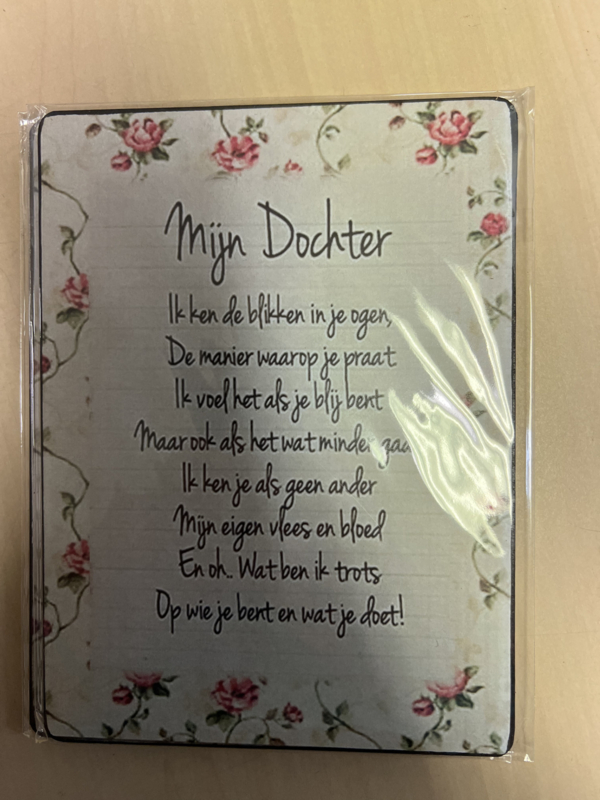 Mijn Dochter
Ik ken de blikken in je ogen,
De manier waarop je praat
Ik voel het als je blij bent
Maar ook als het wat minder gaat
Ik ken je als geen ander
Mijn eigen vlees en bloed
En oh.. Wat ben ik trots
Op wie je bent en wat je doet!